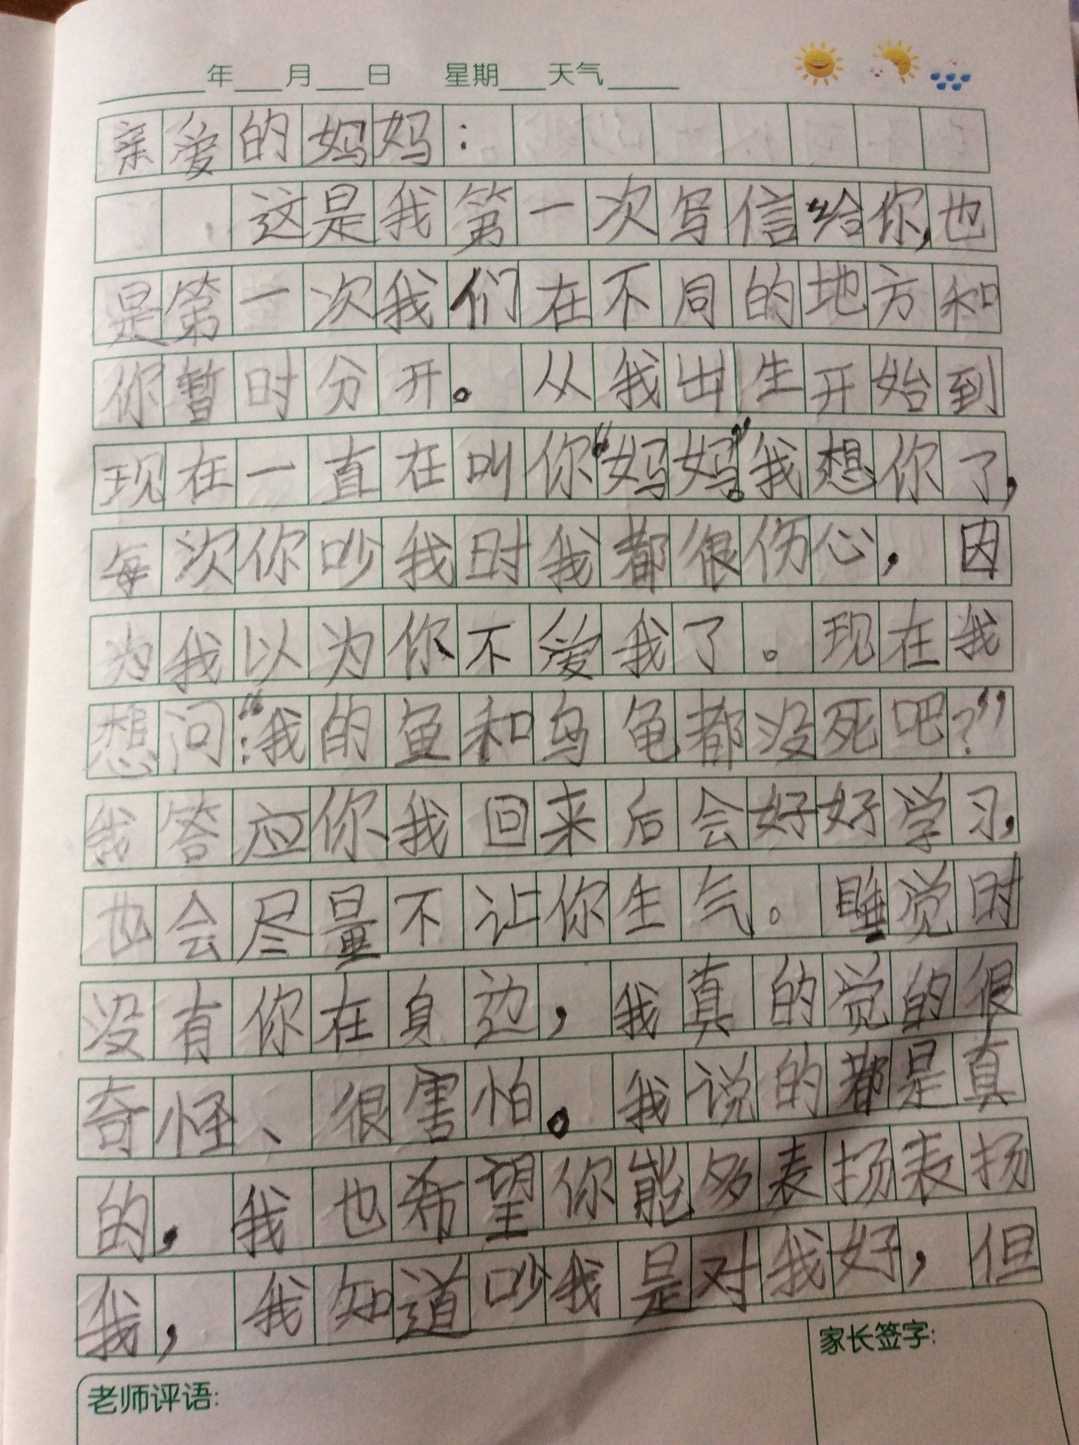 年 月 日 星期 天气
亲爱的妈妈：
这是我第一次写信给你,也
是第一次我们在不同的地方和
你暂时分开。从我出生开始到
现在一直在叫你“妈妈”。我想你了,
每次你吵我时我都很伤心，因
为我以为你不爱我了。现在我
想问:“我的鱼和乌龟都没死吧?”
我答应你我回来后会好好学习,
也会尽量不让你生气。睡觉时
没有你在身边，我真的觉的很
奇怪、很害怕。我说的都是真
的，我也希望你能多表扬表扬
我，我知道吵我是对我好，但
老师评语:
家长签字: